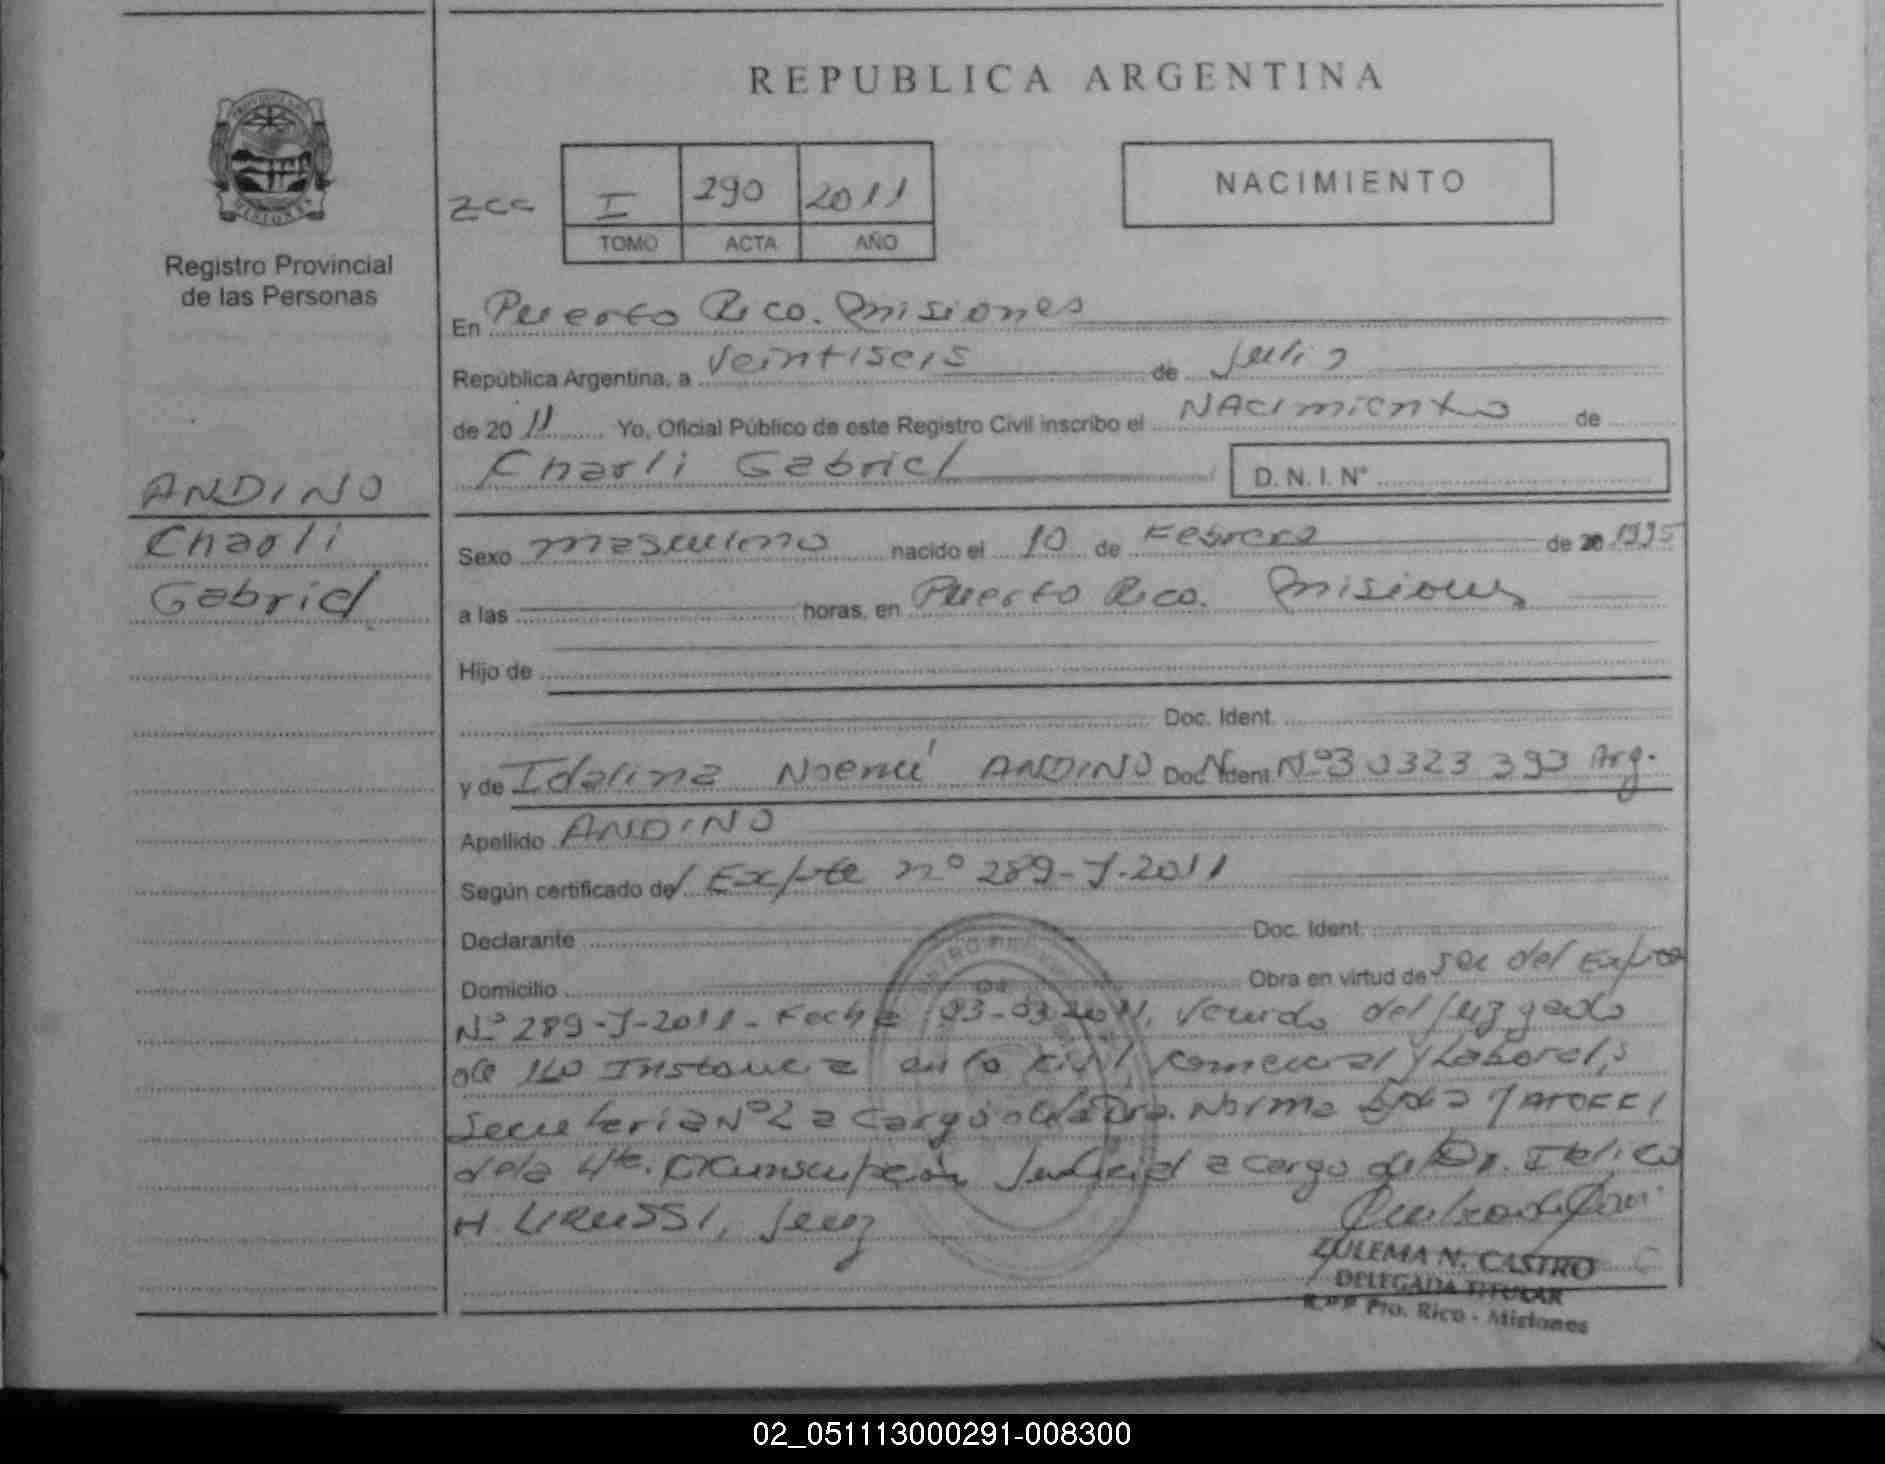 REPUBLICA ARGENTINA
NACIMIENTO
I 290 2011
TOMO ACTA AÑO
Registro Provincial
de las Personas
En Puerto Rico. Misiones
República Argentina, a veintiseis de Julio
de 20 11 Yo, Oficial Público de este Registro Civil inscribo el NACimiento de
Charli Gabriel D.N.I. Nº
ANDINO
Charli
Gabriel
Sexo masculino nacido el 10 de Febrero de 20 1995
a las horas, en Puerto Rico. Misiones
Hijo de
Doc. Ident.
y de Idalina Noemí ANDINO Doc. Ident. Nº 30323393 Arg.
Apellido ANDINO
Según certificado del Expte nº 289-J-2011
Declarante Doc. Ident.
Domicilio Obra en virtud de ser del Expte
Nº 289-J-2011- Fecha 03-03-2011, venido del Juzgado
de Instancia en lo civil, comercial y Laboral,
Secretaria Nº 2 a cargo de la Dra. Norma
de la 4ta. Circunscripción Judicial a cargo del Dr. Italico
H. Juez
ZULEMA N. CASTRO
DELEGADA TITULAR
R.P.P Pto. Rico - Misiones
02_051113000291-008300